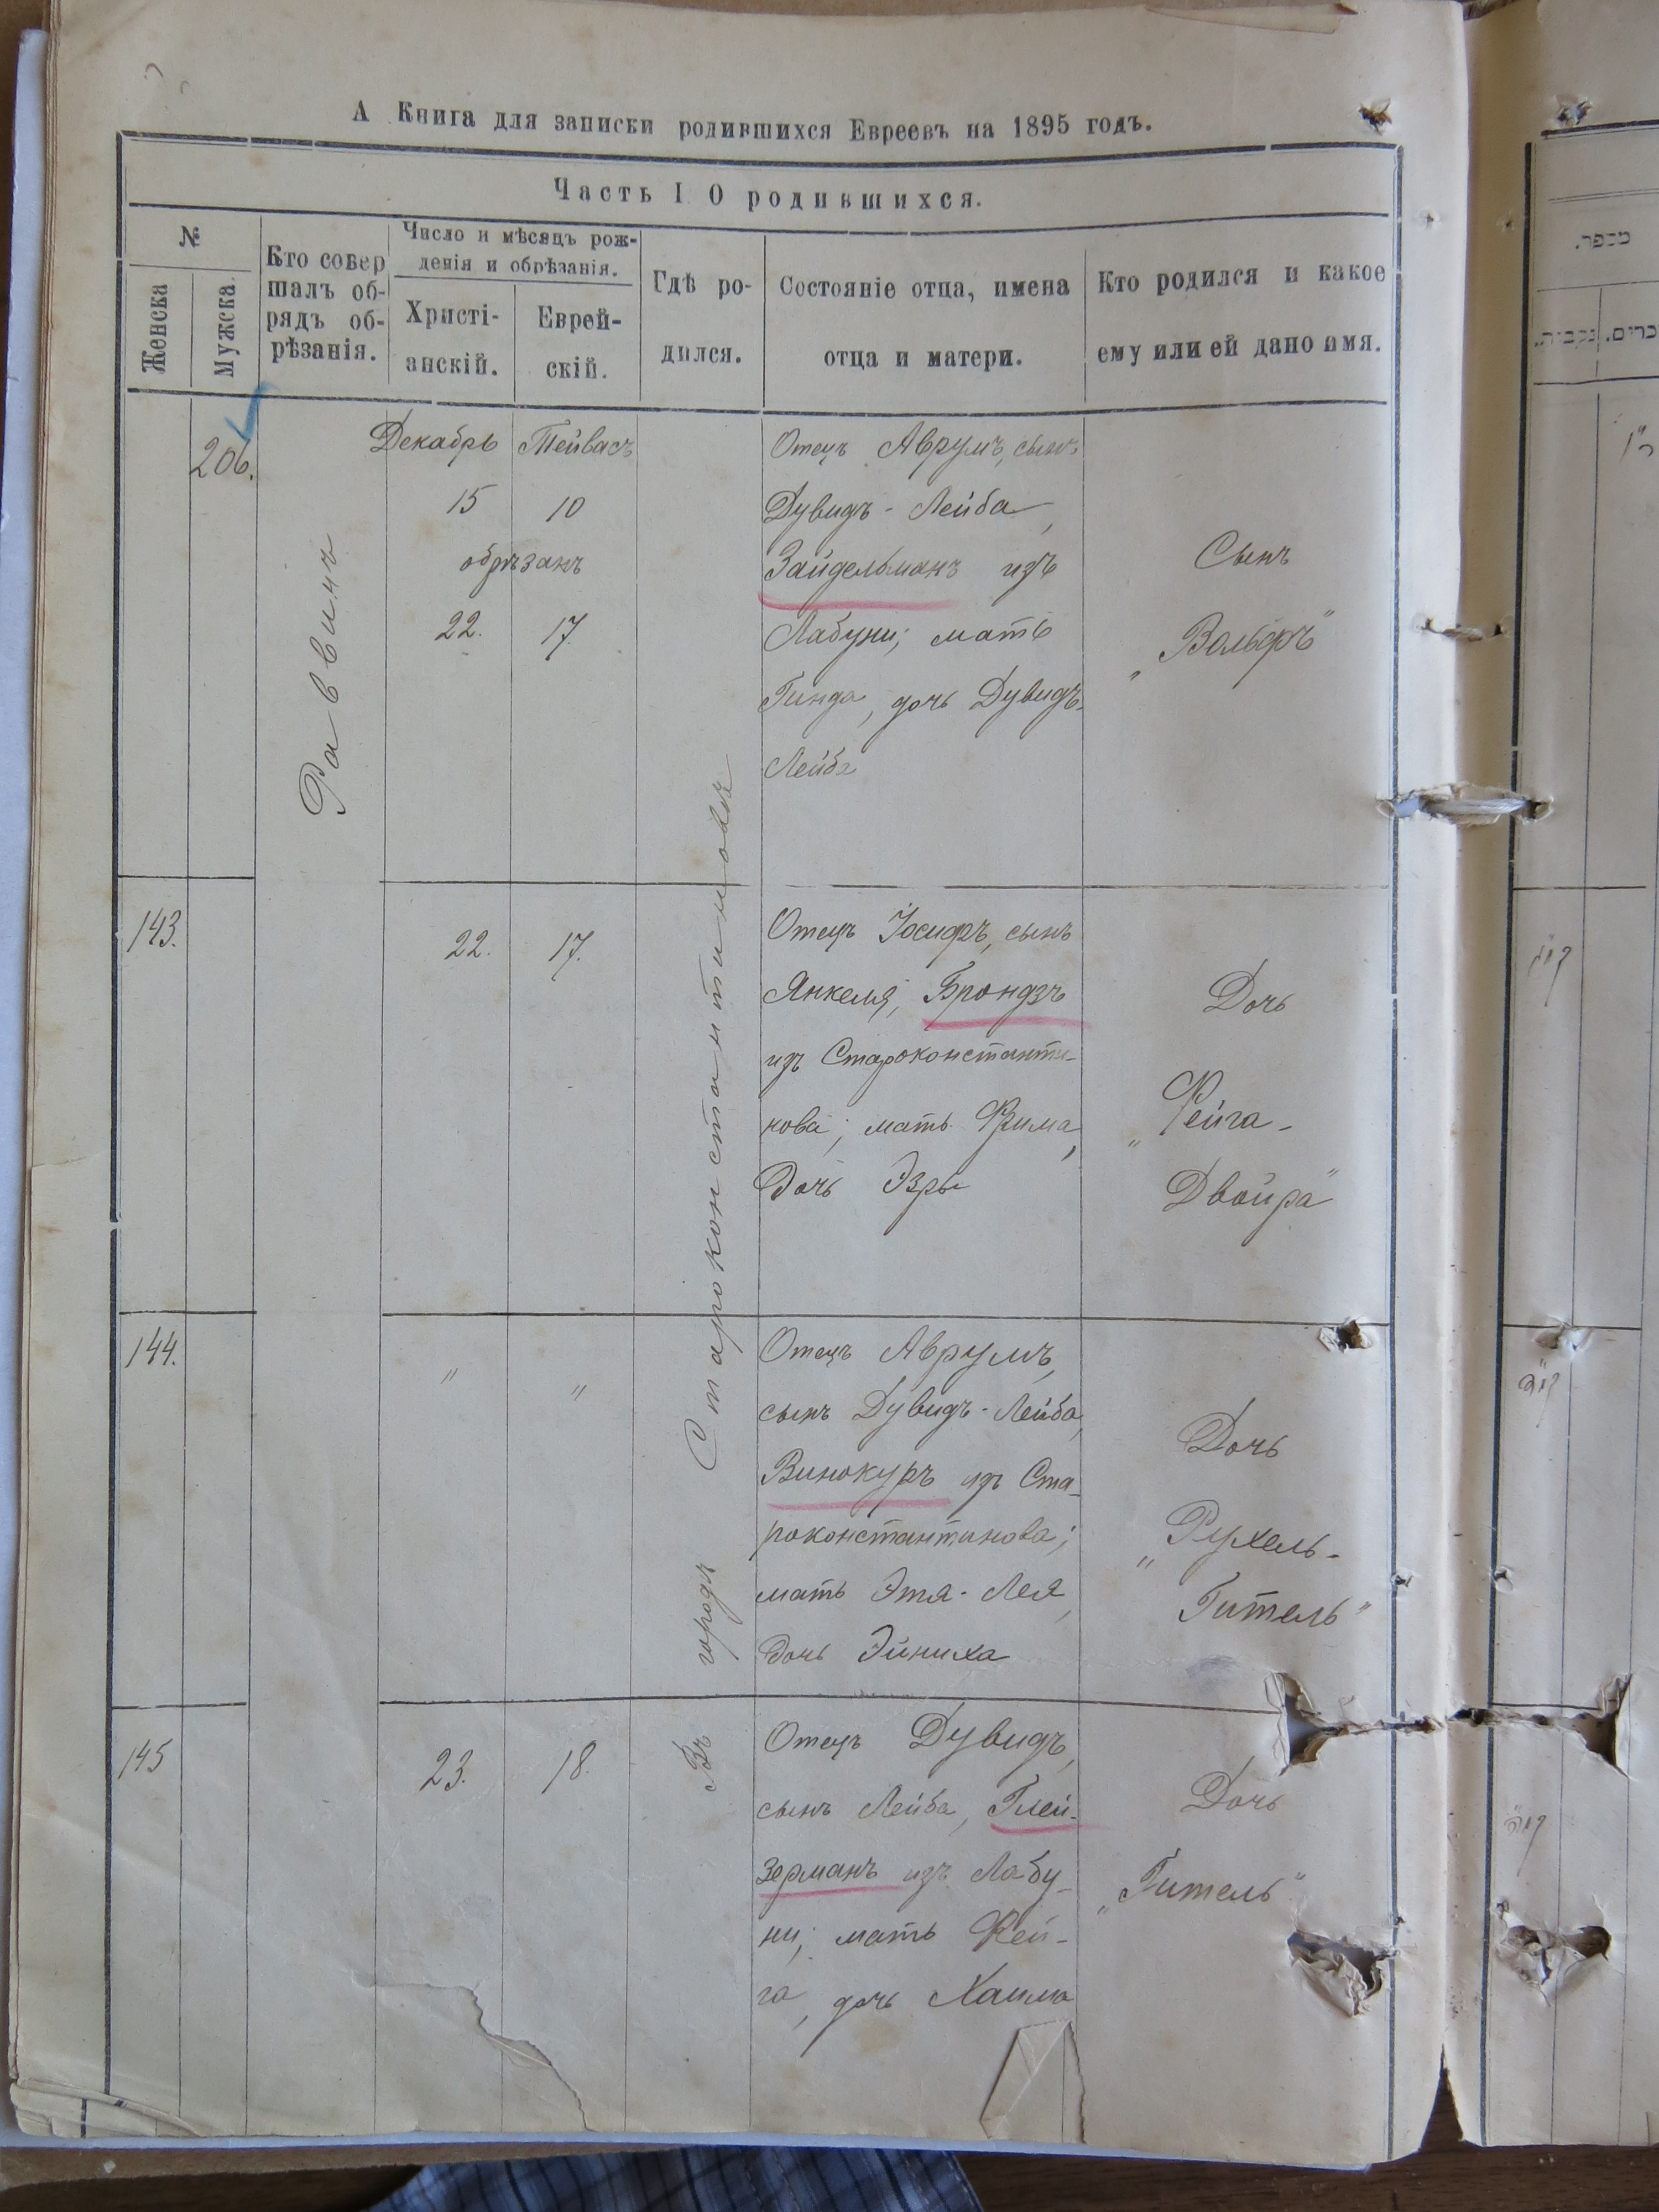 А Книга для записки родившихся Евреевъ на 1895 годъ.
Часть I О родившихся.
№
Женска
Мужска
Кто совер
шалъ об-
рядъ об-
рѣзанія.
Число и мѣсяцъ рож-
денія и обрѣзанія.
Христі-
анскій.
Еврей-
скій.
Гдѣ ро-
дился.
Состояніе отца, имена
отца и матери.
Кто родился и какое
ему или ей дано имя.
206.
Раввинъ
Декабрь
Тейвасъ
15
10
обрѣзанъ
22.
17.
Въ городѣ Староконстантиновѣ
Отецъ Аврумъ, сынъ
Дувидъ-Лейба,
Зайдельманъ изъ
Лабуни; мать
Гинда, дочь Дувидъ-
Лейба
Сынъ
„Вольфъ"
143.
22.
17.
Отецъ Іосифъ, сынъ
Янкеля, Брондзъ
изъ Староконстанти-
нова; мать Фрима,
дочь Эзры
Дочь
„Фейга-
Двойра"
144.
"
"
Отецъ Аврумъ,
сынъ Дувидъ-Лейба,
Винокуръ изъ Ста-
роконстантинова;
мать Этя-Лея,
дочь Эйниха
Дочь
„Рухель-
Гитель"
145
23.
18.
Отецъ Дувидъ,
сынъ Лейба, Глей-
зерманъ изъ Лабу-
ни; мать Фей-
га, дочь Хаима
Дочь
„Гитель"
מספר.
נקבות.